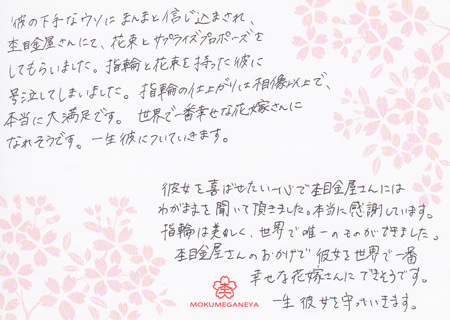 彼の下手なウソにまんまと信じ込まされ、
杢目金屋さんにて、花束とサプライズプロポーズを
してもらいました。指輪と花束を持った彼に
号泣してしまいました。指輪の仕上がりは想像以上で、
本当に大満足です。世界で一番幸せな花嫁さんに
なれそうです。一生彼についていきます。
彼女を喜ばせたい一心で杢目金屋さんには
わがままを聞いて頂きました。本当に感謝しています。
指輪は美しく、世界で唯一のものができました。
杢目金屋さんのおかげで彼女を世界で一番
幸せな花嫁さんにできそうです。
一生彼女を守っていきます。
MOKUMEGANEYA